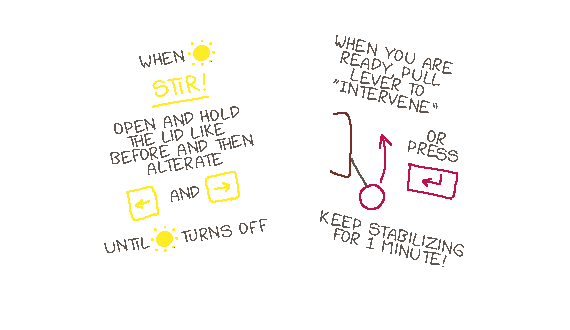 WHEN
STIR!
OPEN AND HOLD
THE LID LIKE
BEFORE AND THEN
ALTERATE
← AND →
UNTIL TURNS OFF
WHEN YOU ARE
READY, PULL
LEVER TO
"INTERVENE"
OR
PRESS
KEEP STABILIZING
FOR 1 MINUTE!